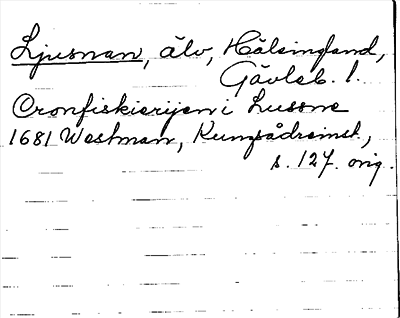 Ljusnan, älv, Hälsingland,
Gävleb. l.
Cronfiskierijen i Lussne
1681 Westman, Kungsådreinst.,
s. 127. orig.